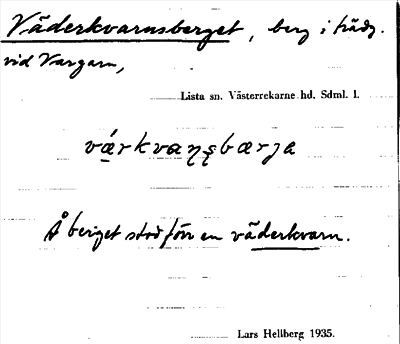 Väderkvarnsberget, berg i trädg.
vid Vargarn,
Lista sn. Västerrekarne hd. Sdml. l.
væ̀rkvaɳʂbærja
Å berget stod förr en väderkvarn.
Lars Hellberg 1935.